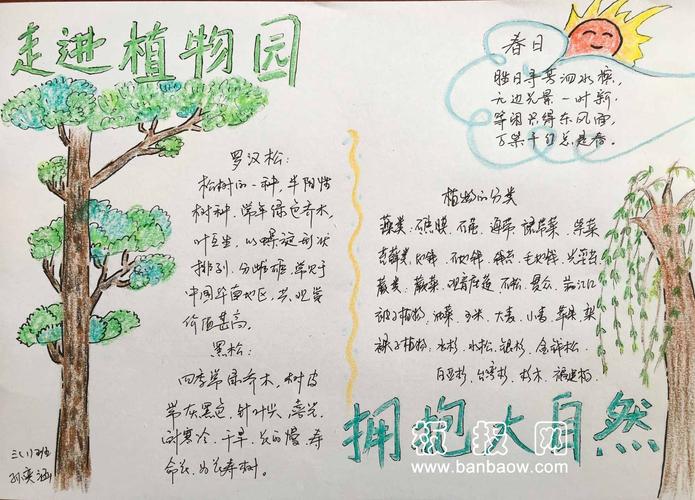 走进植物园
罗汉松：
松树的一种，半阴性
树种，常年绿色乔木，
叶互生，以螺旋形状
排列，分雌雄，常见于
中国华南地区，其观赏
价值甚高。
黑松：
四季常绿乔木，树皮
带灰黑色，针叶尖，喜光，
耐寒冷、干旱，长的慢，寿
命长，为长寿树。
三(1)班
春日
胜日寻芳泗水滨，
无边光景一时新，
等闲识得东风面，
万紫千红总是春。
植物的分类
藻类
苔藓类
蕨类、蕨菜
被子植物、油菜、玉米、大麦、小麦、苹果、梨
裸子植物：水杉、水松、银杉、金钱松、
台湾杉、杉木、福建柏
拥抱大自然
板报网
www.banbaow.com